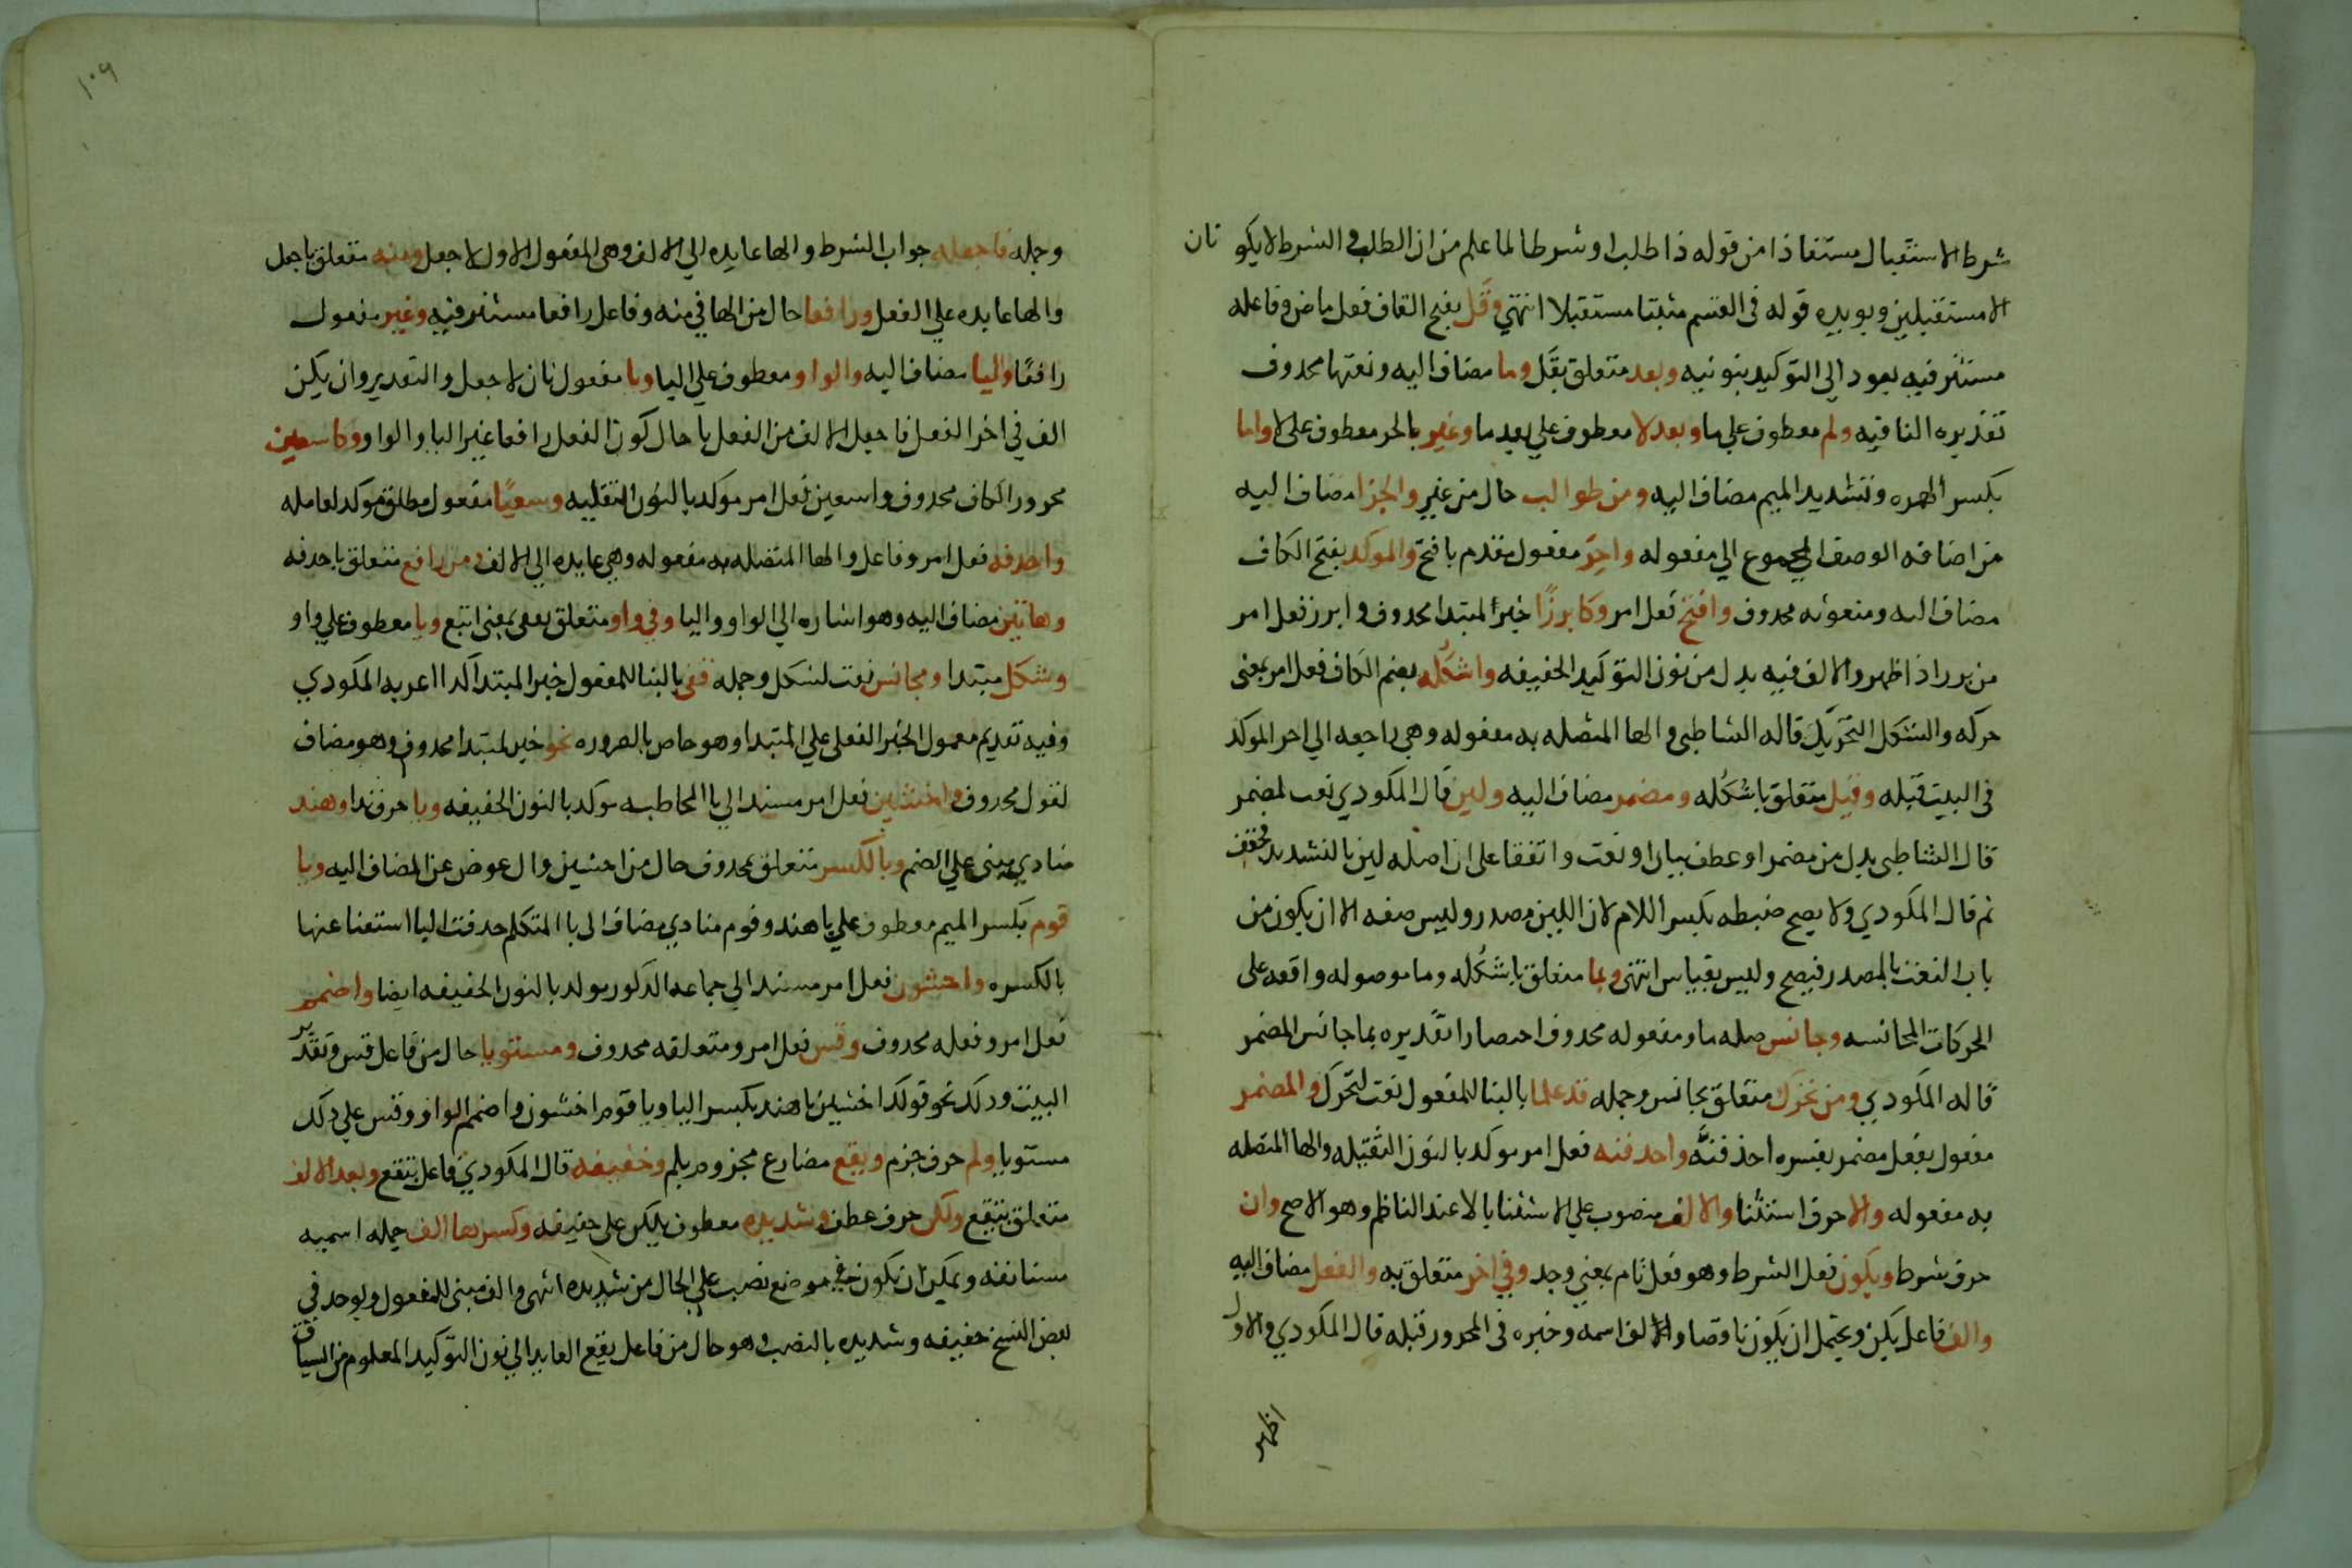 شرط الاستقبال مستفاذا من قوله ذا طلب او شرطا لما علم من ان الطلب والشرط لا يكونان
الا مستقبلين ويويده قوله في القسم مثبتا مستقبلا انتهي وقَل بفتح القاف فعل ماض وفاعله
مستتر فيه يعود الي التوكيد بنونيه وبعد متعلق بقَل وما مضاف اليه ونعتها محذوف
تقديره النافيه ولم معطوف علي ما وبعد لا معطوف علي بعد ما وغير بالجر معطوف علي لا واما
بكسر الهمزه وتشديد الميم مضاف اليه ومن طوالب حال من غير والجزا مضاف اليه
من اضافه الوصف المجموع الي مفعوله واخر مفعول مقدم بافتح والموكد بفتح الكاف
مضاف اليه ومنعوته محذوف وافتح فعل امر وكابرزًا خبر المبتدا محذوف وابرز فعل امر
من برر اذا ظهر والالف فيه بدل من نون التوكيد الخفيفه واشكُله بضم الكاف فعل امر بمعني
حركه والشكل التحريك قاله الشاطبي والها المتصله به مفعوله وهي راجعه الي اخر الموكد
في البيت قبله وقبل متعلق باشكُله ومضمر مضاف اليه ولين قال المكودي نعت لمضمر
قال الشاطبي بدل من مضمر او عطف بيان او نعت واتفقا علي ان اصله لين بالتشديد مخفف
ثم قال المكودي ولا يصح ضبطه بكسر اللام لان اللين مصدر وليس صفه الا ان يكون من
باب النعت بالمصدر فيصح وليس بقياس انتهي وبما متعلق باشكُله وما موصوله واقعه علي
الحركات المجانسه وجانس صله ما ومفعوله محذوف اختصارا تقديره بما جانس المضمر
قاله المكودي ومن تحرك متعلق بجانس وجمله قد علما بالبنا للمفعول نعت لتحرك والمضمر
مفعول بفعل مضمر يفسره احذفنَّه واحذفنه فعل امر موكد بالنون الثقيله والها المتصله
به مفعوله والا حرف استثنا والالف منصوب علي الاستثنا بالا عند الناظم وهو الاصح وان
حرف شرط ويكون فعل الشرط وهو فعل تام بمعني وجد وفي اخر متعلق به والفعل مضاف اليه
والف فاعل يكن ويحتمل ان يكون ناقصا والالف اسمه وخبره في المجرور قبله قال المكودي والاول
اظهر
١٠٩
وجمله فاجعله جواب الشرط والها عايده الي الالف وهي المفعول الاول لاجعل ومنه متعلق باجعل
والها عايده علي الفعل ورافعا حال من الها في منه وفاعل رافعا مستتر فيه وغير مفعول
رافعًا واليا مضاف اليه والواو معطوف علي اليا ويا مفعول ثان لاجعل والتقدير وان يكن
الف في اخر الفعل فاجعل الالف من الفعل يا حال كون الفعل رافعا غير اليا والواو وكاسعين
مجرور الكاف محذوف واسعين فعل امر موكد بالنون الثقليه وسعيًا مفعول مطلق موكد لعامله
واحذفه فعل امر وفاعل والها المتصله به مفعوله وهي عايده الي الالف ومن رافع متعلق باحذفه
وهاتين مضاف اليه وهو اشاره الي الواو واليا وفي واو متعلق بقفي بمعني اتبع ويا معطوف علي واو
وشكل مبتدا ومجانس نعت لشكل وجمله قفي بالبنا للمفعول خبر المبتدا كذا اعربه المكودي
وفيه تقديم معمول الخبر الفعلي علي المبتدا وهو خاص بالضروره نحو خبر لمبتدا محذوف وهو مضاف
لقول محذوف واخشين فعل امر مسند الي يا المخاطبه موكد بالنون الخفيفه ويا حرف ندا وهند
منادي مبني علي الضم وبالكسر متعلق بمحذوف حال من اخشين وال عوض عن المضاف اليه ويا
قوم بكسر الميم معطوف علي يا هند وقوم منادي مضاف الي يا المتكلم حذفت اليا استغنا عنها
بالكسره واخشون فعل امر مسند الي جماعه الذكور موكد بالنون الخفيفه ايضا واضمم
فعل امر وفعله محذوف وقس فعل امر ومتعلقه محذوف ومستويا حال من فاعل قس وتقدير
البيت وذلك نحو قولك اخشين يا هند بكسر اليا ويا قوم اخشون واضمم الواو وقس علي ذلك
مستويا ولم حرف جزم ويقع مضارع مجزوم بلم وخفيفه قال المكودي فاعل بتقع وبعد الالف
متعلق بتقع ولكن حرف عطف وشديده معطوف بلكن علي خفيفه وكسرها الف جمله اسميه
مستانفه ويمكن ان تكون في موضع نصب علي الحال من شديده انتهي والف مبني للمفعول ويوجد في
بعض النسخ خفيفه وشديده بالنصب وهو حال من فاعل يقع العايد الي نون التوكيد المعلوم من السياق